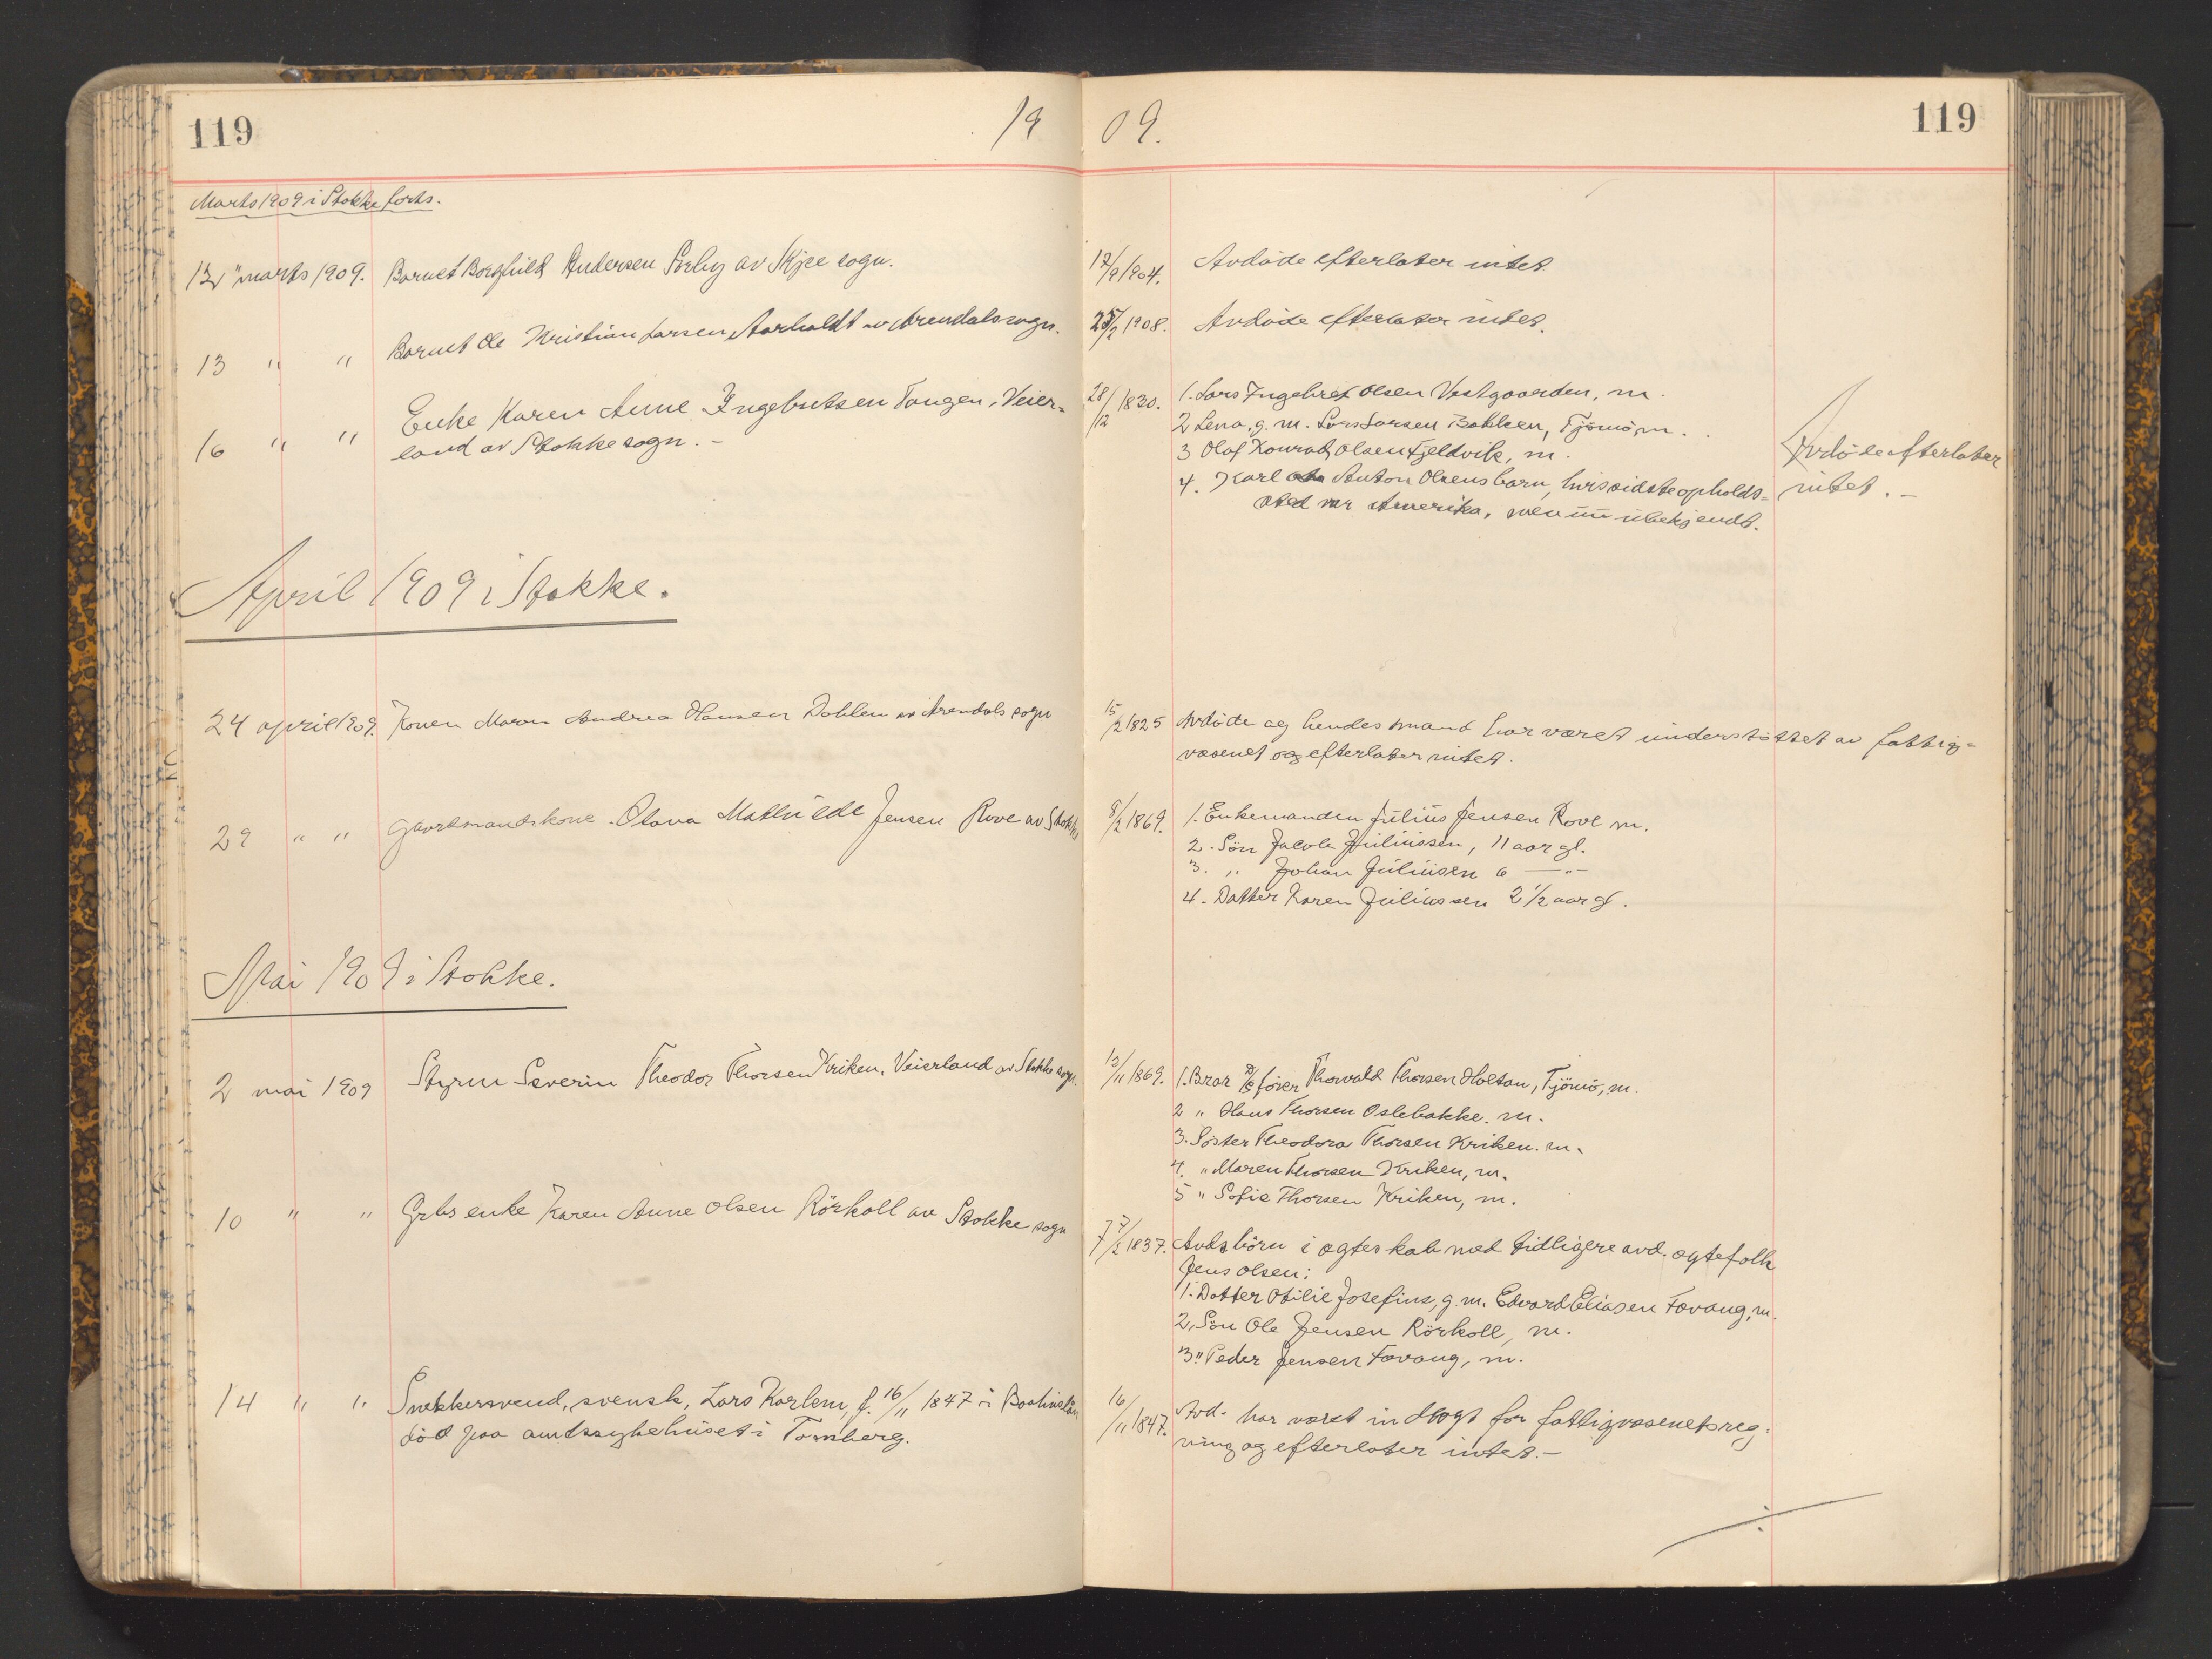 119
19
09.
119
Marts 1909 i Stokke forts.
12 marts 1909. Barnet Borghild Andersen Sørby av Skjee sogn.
12/9 1904. Avdøde efterlater intet
13 " " Barnet Ole Kristian Larsen Aarholdt av Arendals sogn.
25/2 1908. Avdøde efterlater intet.
16 " " Enke Karen Anne Ingebretsen Tangen, Veier-
land av Stokke sogn. -
28/12 1830. 1. Lars Ingebret Olsen Vestgaarden, m.
2 Lena, g. m. Lars Larsen Bakken, Tjømø, m.
3 Olaf Konrad Olsen Fjeldvik, m.
4. Karl Anton Olsens barn, hvis sidste opholds-
sted var Amerika, men nu ubekjendt.
Avdøde efterlater
intet. -
April 1909 i Stokke.
24 april 1909. Konen Maren Andrea Hansen Dahlen av Arendals sogn
15/2 1825 Avdøde og hendes mand har været understøttet av fattig-
væsenet og efterlater intet.
29 " " Gaardmandskone Olava Mathilde Jensen Rove av Stokke
8/2 1869. 1. Enkemanden Julius Jensen Rove m.
2. Søn Jacob Juliussen, 11 aar gl.
3. " Johan Juliussen 6 — " —
4. Datter Karen Juliussen 2 1/2 aar gl.
Mai 1909 i Stokke.
2 mai 1909 Styrm Severin Theodor Thorsen Kriken, Veierland av Stokke sogn.
13/11 1869. 1. Bror fører Thorvald Thorsen Holtan, Tjømø, m.
2 " Hans Thorsen Oslebakke. m.
3. Søster Theodora Thorsen Kriken. m.
4. " Maren Thorsen Kriken, m.
5 " Sofie Thorsen Kriken, m.
10 " " Grbs enke Karen Anne Olsen Rörkoll av Stokke sogn
7/2 1837. Avds börn i ægteskab med tidligere avd. ægtefolk
Jens Olsen:
1. Datter Otilie Josefine, g. m. Edvard Eliasen Favang, m.
2, Søn Ole Jensen Rörkoll, m.
3 " Peder Jensen Favang, m.
14 " " Snekkersvend, svensk, Lars Karlem, f. 16/11 1847 i Boahuslän
död paa amtssygehuset i Tønsberg.
16/11 1847. Avd. har været indlagt for fattigvæsenets reg-
ning og efterlater intet. -